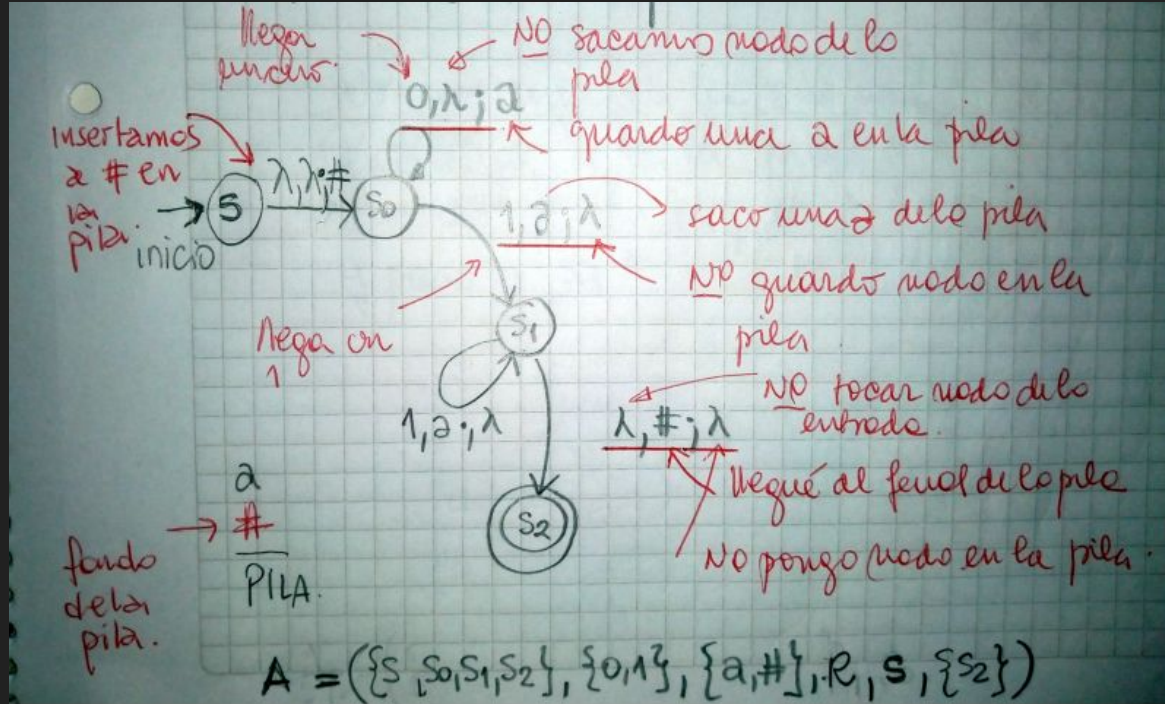 llega
un cero.
NO sacamos nodo de la
pila
0,λ;a
guardo una a en la pila
insertamos
a # en
la
pila.
S
λ,λ;#
S0
inicio
1,a;λ
saco una a de la pila
NO guardo nodo en la
pila
llega un
1
S1
1,a;λ
NO tocar nodo de la
entrada.
λ,#;λ
llegué al final de la pila
No pongo nodo en la pila.
S2
a
#
PILA.
fondo
de la
pila.
A = ({S, S0, S1, S2}, {0,1}, {a,#}, R, S, {S2})